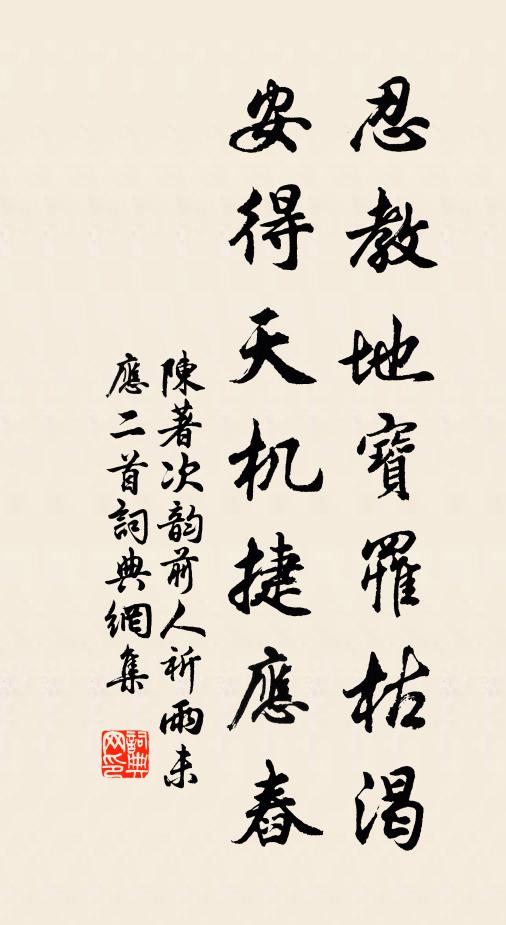 忍教地寶罹枯渴
安得天机捷應舂
陳著次韵前人祈雨未
應二首詞典網集
詞典網印